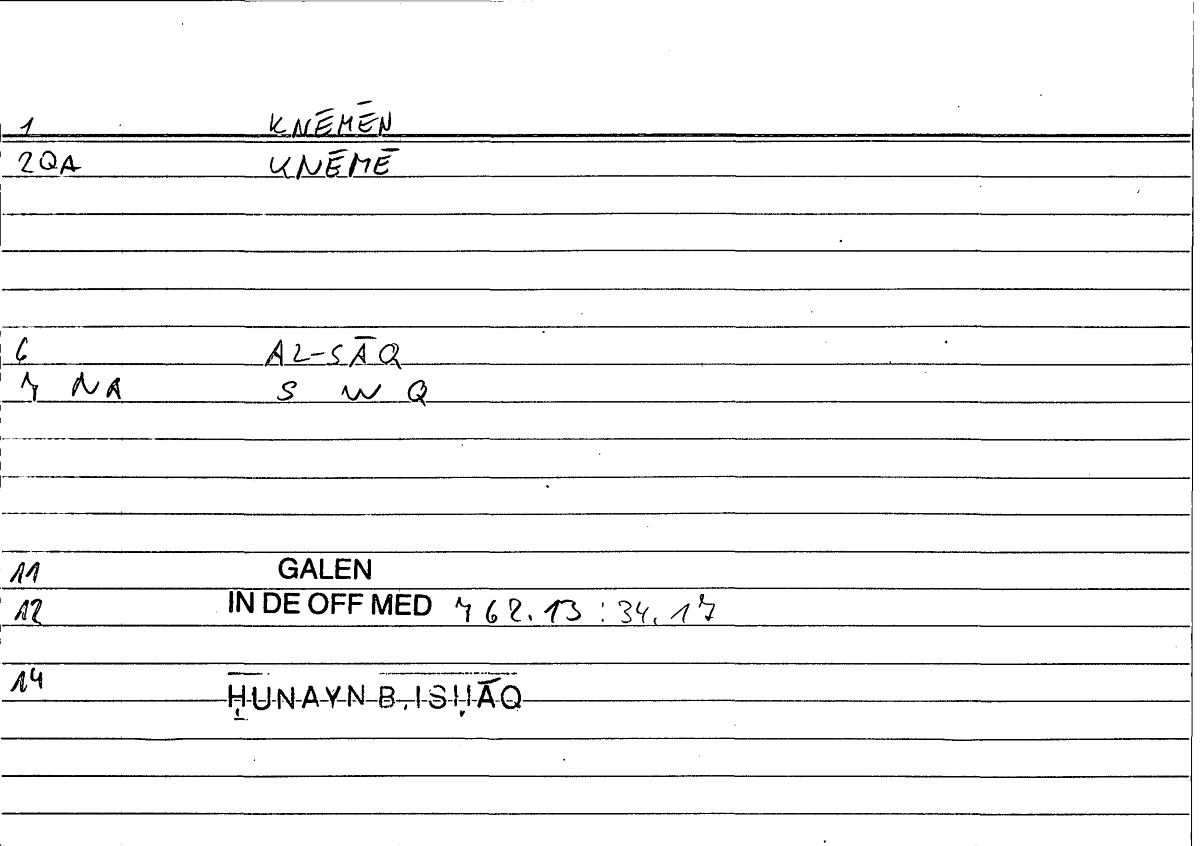 1 KNĒMĒN
2QA KNĒMĒ
6 AL-SĀQ
7 NA S W Q
11 GALEN
12 IN DE OFF MED 762.13:34.17
14 ḤUNAYN B. ISḤĀQ